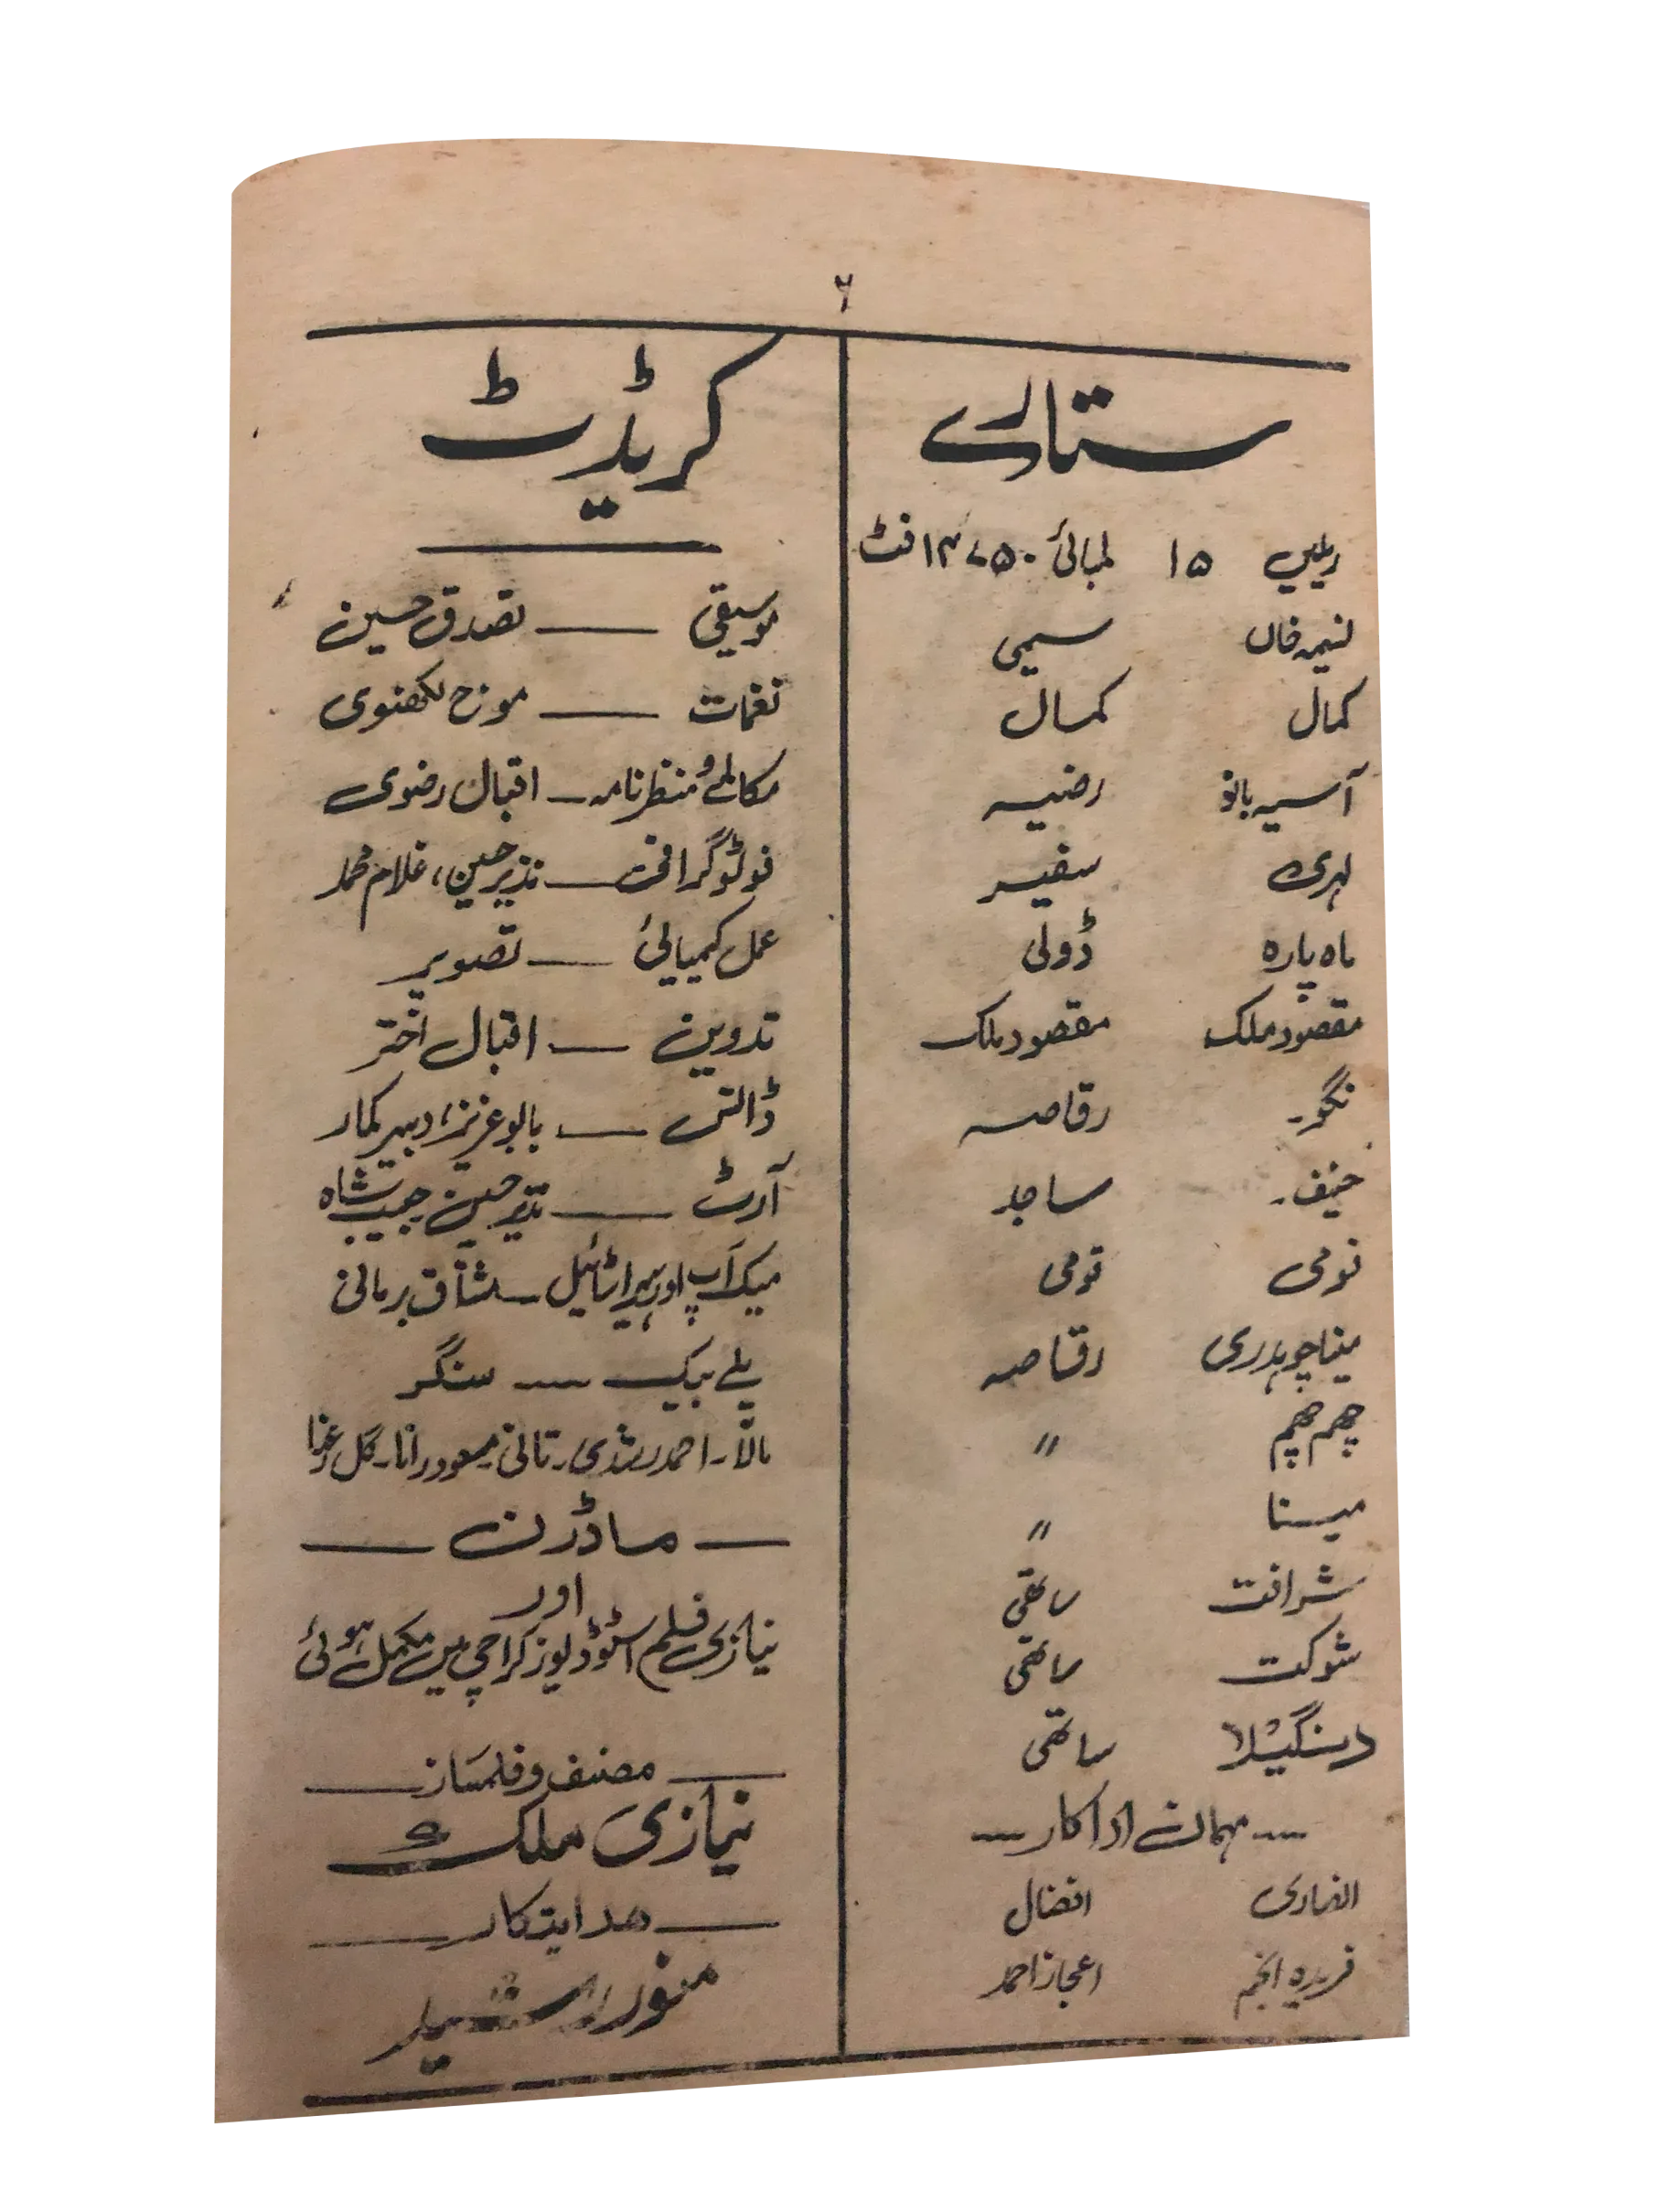 ۶
ستارے
ریلیں ۱۵ لمبائی ۱۴۷۵۰ فٹ
نسیمہ خاں سیمی
کمال کمال
آسیہ بانو رضیہ
لہری سفیر
ماہ پارہ ڈولی
مقصود ملک مقصود ملک
نگو۔ رقاصہ
حنیف۔ ساجد
نومی نومی
مینا چوہدری رقاصہ
چھم چھم 〃
مینا 〃
شرافت ساتھی
شوکت ساتھی
رنگیلا ساتھی
--- مہمان اداکار ---
انصاری افضال
فریدہ انجم اعجاز احمد
کریڈٹ
موسیقی — تصدق حسین
نغمات — موج لکھنوی
مکالمے و منظر نامہ — اقبال رضوی
فوٹوگرافی — نذیر حسین، غلام محمد
عمل کیمیائی — تصویر
تدوین — اقبال اختر
ڈانس — بابو عزیز، دبیر کمار
آرٹ — نذیر حسین حبیب شاہ
میک اَپ اور ہیر اسٹائیل — مشتاق برمانی
پلے بیک --- سنگر
مالا۔ احمد رشدی۔ تانی۔ مسعود رانا۔ گل رعنا
— ماڈرن —
اور
نیازی فلم اسٹوڈیوز کراچی میں مکمل ہوئی
— مصنف و فلمساز —
نیازی ملک
— ھدایتکار —
منور رشید